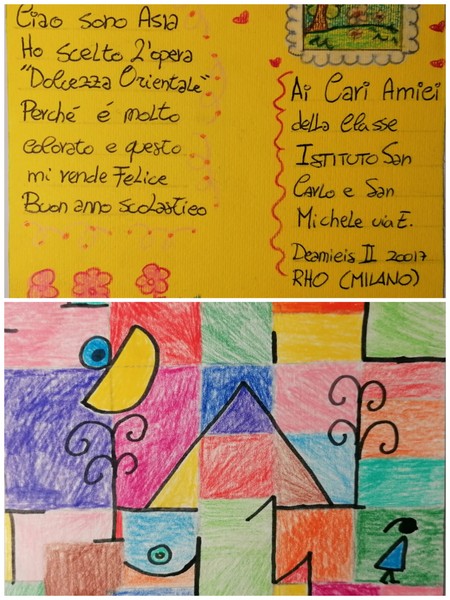 Ciao sono Asia
Ho scelto L'opera
"Dolcezza Orientale"
Perché é molto
colorato e questo
mi rende Felice
Buon anno scolastico
Ai Cari Amici
della Classe
ISTITUTO San
Carlo e San
Michele via E.
Deamicis II 20017
RHO (MILANO)